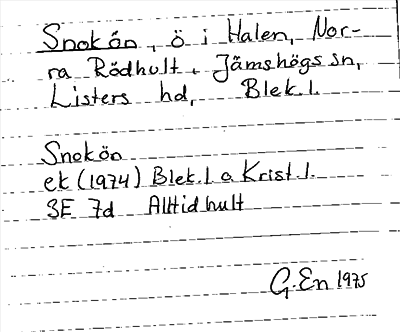 Snokön, ö i Halen, Nor-
ra Rödhult, Jämshögs sn,
Listers hd, Blek.l.
Snokön
ek (1974) Blek.l o Krist.l.
3E 7d Alltidhult
G. En 1975